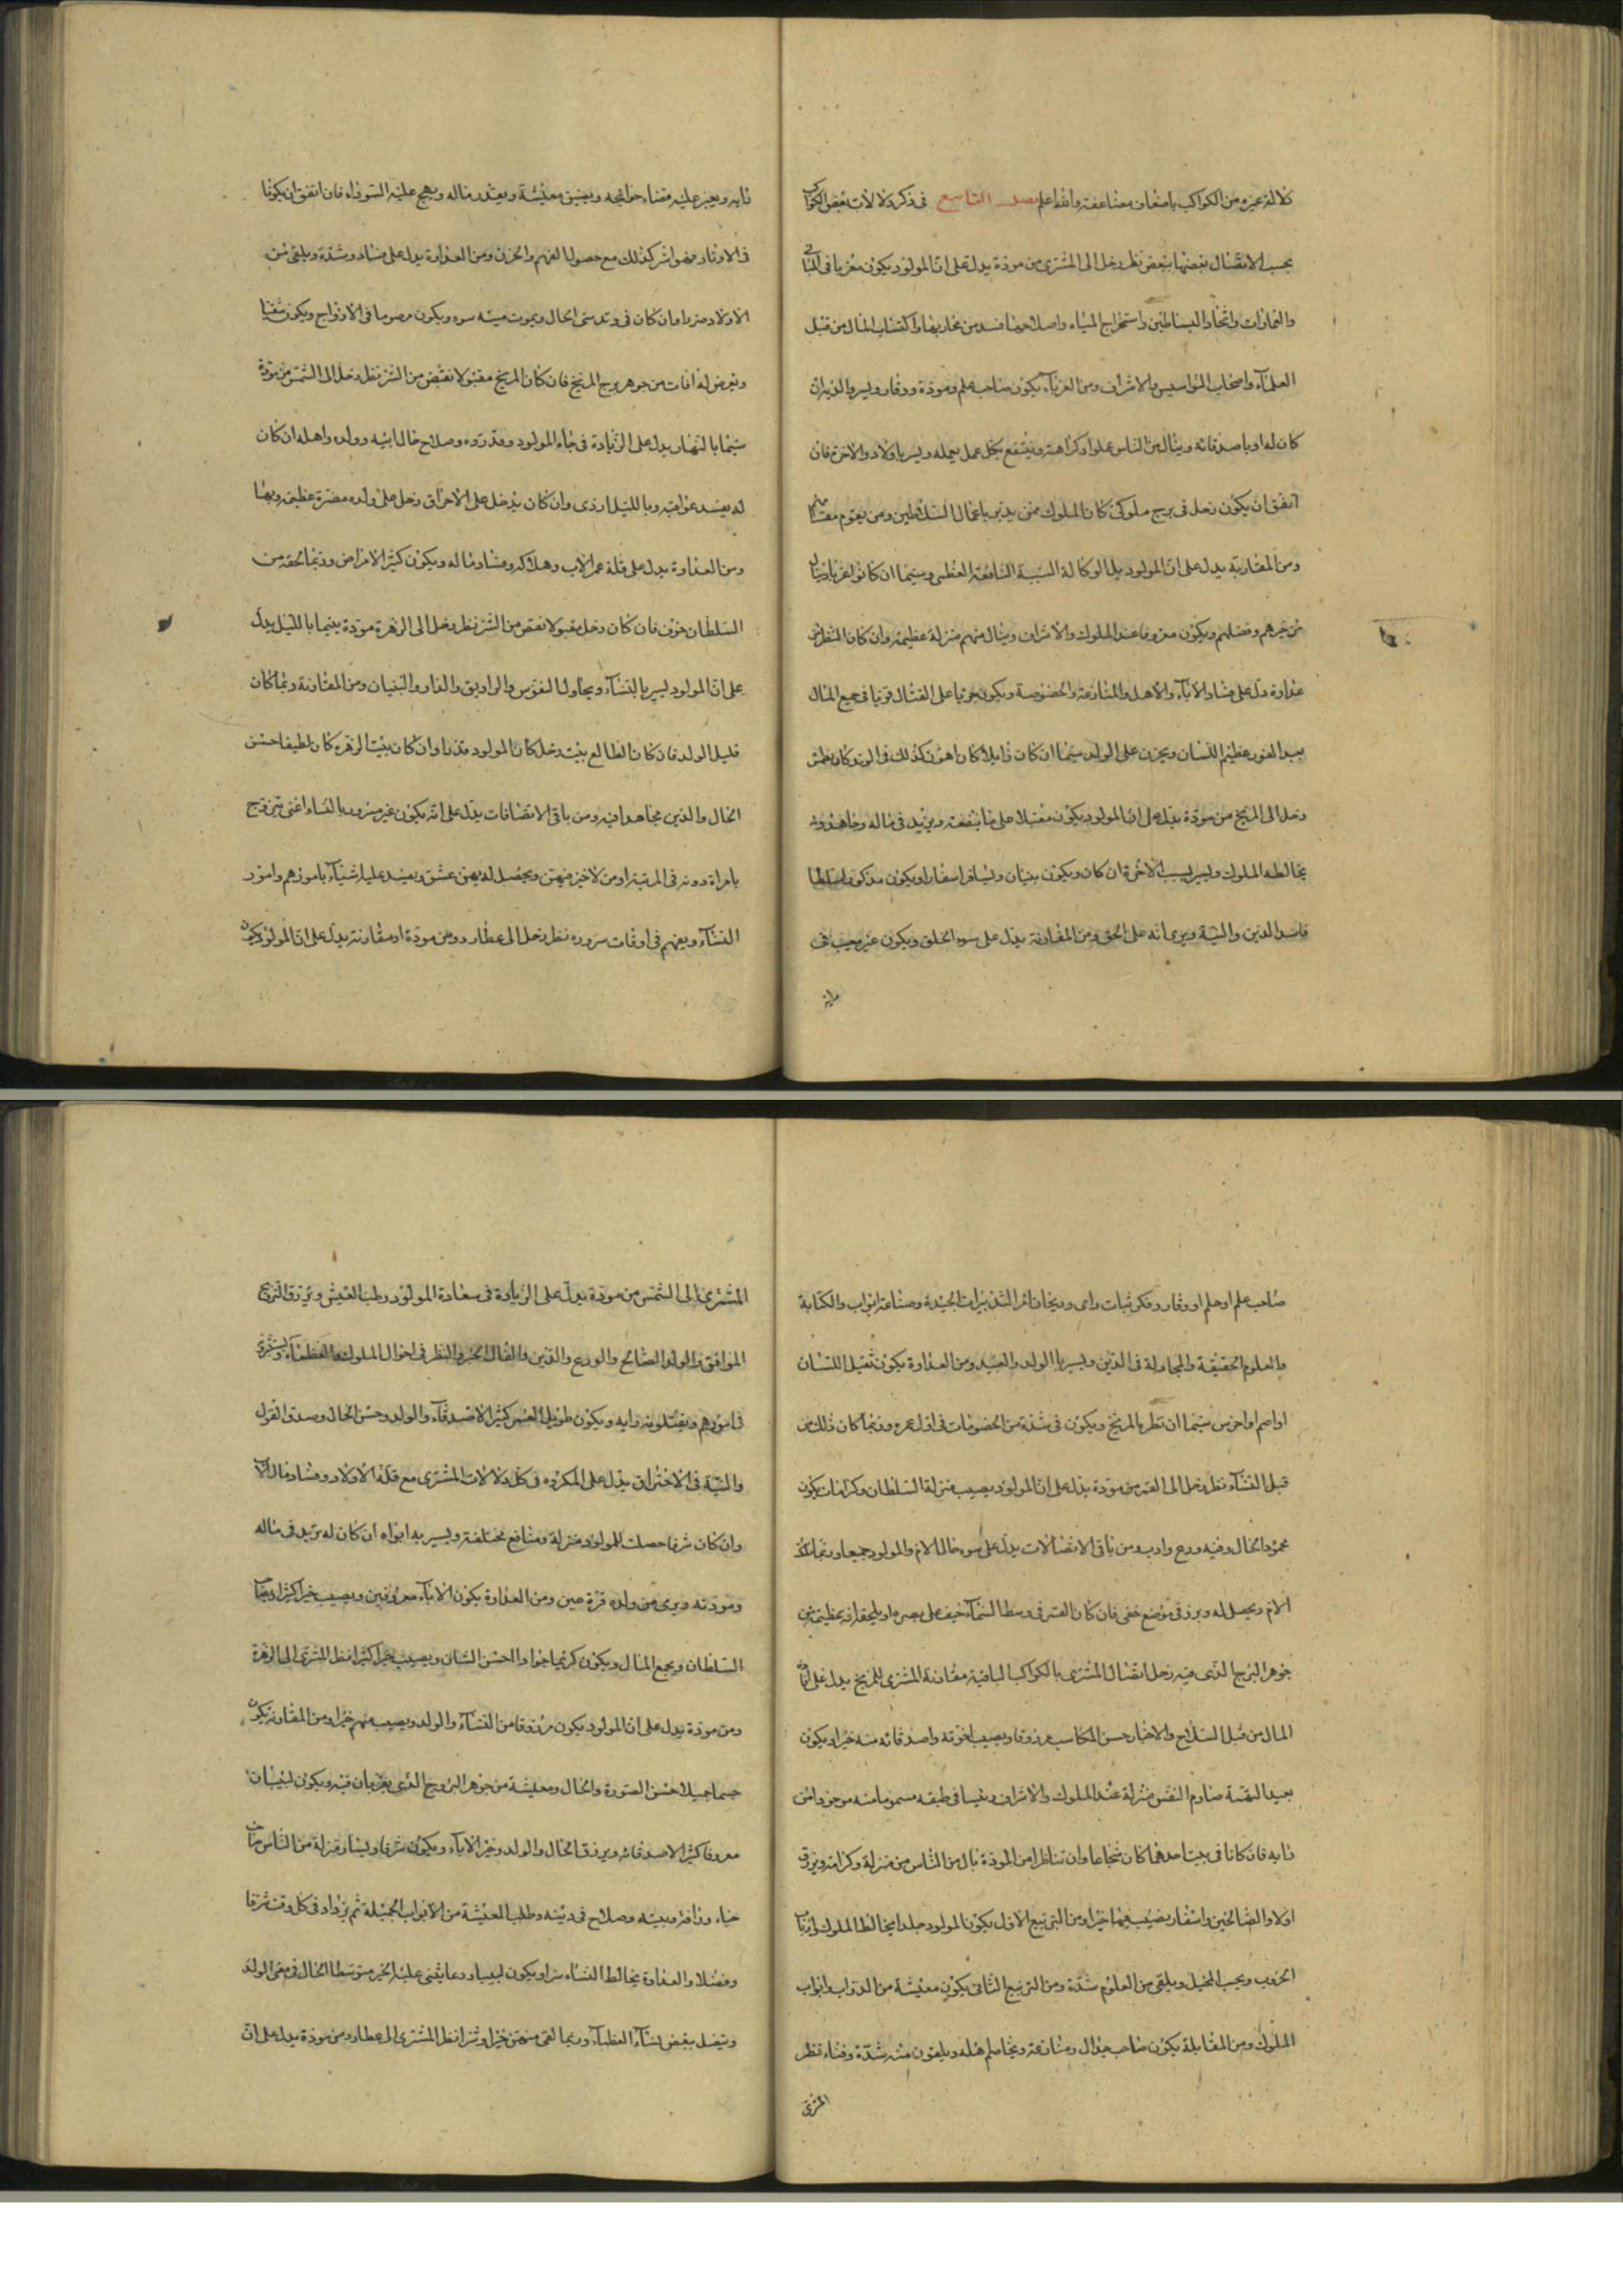 دلالة غيره من الكواكب باضعاف مضاعفة والله اعلم فصل التاسع فى ذكر دلالات بعض الكواكب
بحسب الاتصال بعضها ببعض نظر زحل الى المشترى من مودة يدل على ان المولود يكون مغريا فى البنيان
والعمارات واتخاذ البساطين واستخراج المياه واصلاح ما فسد من مجاريها واكتساب المال من قبل
العلماء واصحاب النواميس والاشراف ومن الغرباء يكون صاحب علم ومودة ووقار ويسر والديه ان
كان له او باصدقائه وينال من الناس علوا وكراهة وينتفع بكل عمل يعمله ويسر باولاد والاخرة فان
اتفق ان يكون زحل فى برج ملوكى كان المولود ممن يدبر باعمال السلاطين ومن يقوم مقامهم
ومن المقارنة يدل على ان المولود يلى الوكالة السنية النافعة العظمى وسيما ان كانوا غرباء فينال
من خيرهم وفضلهم ويكون معروفا عند الملوك والاشراف وينال منهم منزلة عظيمة وان كان النظر من
عداوة دل على فساد الاباء والاهل والمنازعة والخصومة ويكون جريا على القتال قويا فى جميع المال
بعيد الغور عظيم اللسان ويحزن على الولد سيما ان كان زايلا كان اهون كذلك فى الوتد كان نظر
زحل الى المريخ من مودة يدل على ان المولود يكون مقبلا على ما ينفعه ويزيد فى ماله وجاهه
يخالطه الملوك ويسر بسبب الاخوة ان كان ويكون بنيان ويسافر اسفارا ويكون مذكورا
فاسد الدين والنية ويرى انه على الحق ومن المقارنة يدل على سوء الخلق ويكون غير مجيب فى
رايه
رايه ويعسر عليه قضاء حوائجه ويضيق معيشة ويعذر ماله ويهيج عليه السوداء فان اتفق ان يكونا
فى الاوتاد فهو اشر كذلك مع حصول الغم والحزن ومن العداوة يدل على فساد وشدة ويلقى من
الاولاد ضررا وان كان فى وتد سئ الحال ويموت ميتة سوء ويكون فى الازواج ويكون شقيا
وتعرض له افات من جوهر برج المريخ فان كان المريخ مقبولا نقص من الشر نظر زحل الى الشمس من مودة
سيما بالنهار يدل على الزيادة فى جاه المولود وقدره وصلاح حال ابيه وولده واهله ان كان
له يفسد عواقبه وبالليل اردى وان كان يدخل على الاحراق دخل على ولده مضرة عظيمة
ومن العداوة يدل على قلة عمر الاب وهلاكه وفساد ماله ويكون كثير الامراض وربما لحقه من
السلطان خوف فان كان زحل مقبولا نقص من الشر نظر زحل الى الزهرة مودة بينهما بالليل يدل
على ان المولود يسر بالنساء ويحاول الغرس والى اديق والدار والبنيان ومن المقارنة ربما كان
قليل الولد فان كان الطالع بيت زحل كان المولود قذرا وان كان بيت الزهرة كان لطيفا حسن
الحال والدين مجاهدا فيه ومن باقى الاتصالات يدل على انه يكون غير مسرور بالنساء اعنى يتزوج
بامراة دونه فى المرتبة او من لا خير فيهن ويحصل له بهن عشق ويفسد عليه اشياء بامورهم وامور
النساء ويغمهم فى اوقات سروره نظر زحل الى عطارد ومن مودة او مقارنة يدل على ان المولود يكون
صاحب علم او حلم او وقار وفكر ثبات راى التدبيرات الجيدة وصناعة ابواب والكتابة
والعلوم الحقيقة والمحاولة فى الدين ويسر بالولد والعبيد ومن العداوة يكون ثقيل اللسان
او اصم او اخرس سيما ان نظره المريخ ويكون فى شدة من الخصومات فى اول عمره وربما كان ذلك من
قبل النساء نظر زحل الى القمر من مودة يدل على ان المولود يصيب منزلة السلطان وكرامات يكون
محمود الحال وفيه ورع وادب ومن باقى الاتصالات يدل على سوء حال الام والمولود جميعا وربما
الام ويحصل له وبرز فى موضع خفى فان كان القمر فى وسط السماء خيف على بصره او يلحقه افة عظيمة من
جوهر البرج الذى فيه زحل اتصال المشترى بالكواكب الباقية مقارنة المشترى للمريخ يدل على
المال من قبل السلاح والاخبار حسن المكاسب مرزوقا ويصيب اخوته واصدقائه منه خيرا ويكون
بعيد الهمة صارم النفس منزلة عند الملوك والاشراف رئيسا فى طبقه مسموعا منه
رايه فان كانا فى بيت احدهما كان شجاعا وان تناظرا من المودة نال من الناس من منزلة وكرامة ويرزق
اولاد الصالحين واسفار يصيب فيها خيرا ومن التربيع الاول يكون المولود جلدا يخالط الملوك وارباب
الحروب ويحب الخيل ويلقى من العلوم شدة ومن التربيع الثانى يكون معيشة من الدواب وابواب
الملوك ومن المقابلة يكون صاحب جدال ومنازعة ويخاصم اهله ويلقون منه شدة وفناء نظر
المشترى
المشترى الى الشمس من مودة يدل على الزيادة فى سعادة المولود وطيب العيش ويرزق التزويج
الموافق والولد الصالح والورع والدين والفال الخير والنظر فى احوال الملوك والعظماء ويستشرى
فى امورهم ويقبلونه رايه ويكون طويل العمر كثير الاصدقاء والولد وحسن الحال وصدق القول
والنية فى الاحتراق يدل على المكروه فى كل دلالات المشترى مع قلة الاولاد وفساد مال الاب
وان كان شرقيا حصلت للمولود منزلة ومنافع مختلفة ويسر به ابواه ان كان له يزيد فى ماله
ومودته ويرى من ولده قرة عين ومن العداوة يكون الاباء معروفين ويصيب خيرا كثيرا
السلطان ويجمع المال ويكون كريما جوادا حسن الشان ويصيب خيرا كثيرا نظر المشترى الى الزهرة
ومن مودة يدل على ان المولود يكون مرزوقا من النساء والولد ويصيب منهم خيرا ومن المقارنة يكون
جسما جميلا حسن الصورة والحال ومعيشة من جوهر البروج الذى يقربان فيه ويكون
معروفا كثير الاصدقائه ويرزق الحال والولد وخير الاباء ويكون شرفا ويسار ومنزلة من الناس
حياء وصلاح فى دينه وطلب المعيشة من الابواب الجميلة ثم يزداد فى كل وقت شرفا
وفضلا والعداوة يخالط النساء سرا ويكون لبيبا متوسط الحال فى معنى الولد
ويتصل ببعض نساء العظماء وربما لقى منهن خيرا وشرا نظر المشترى الى عطارد من مودة يدل على ان